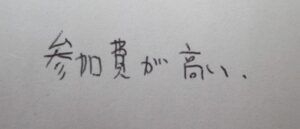 参加費が高い、